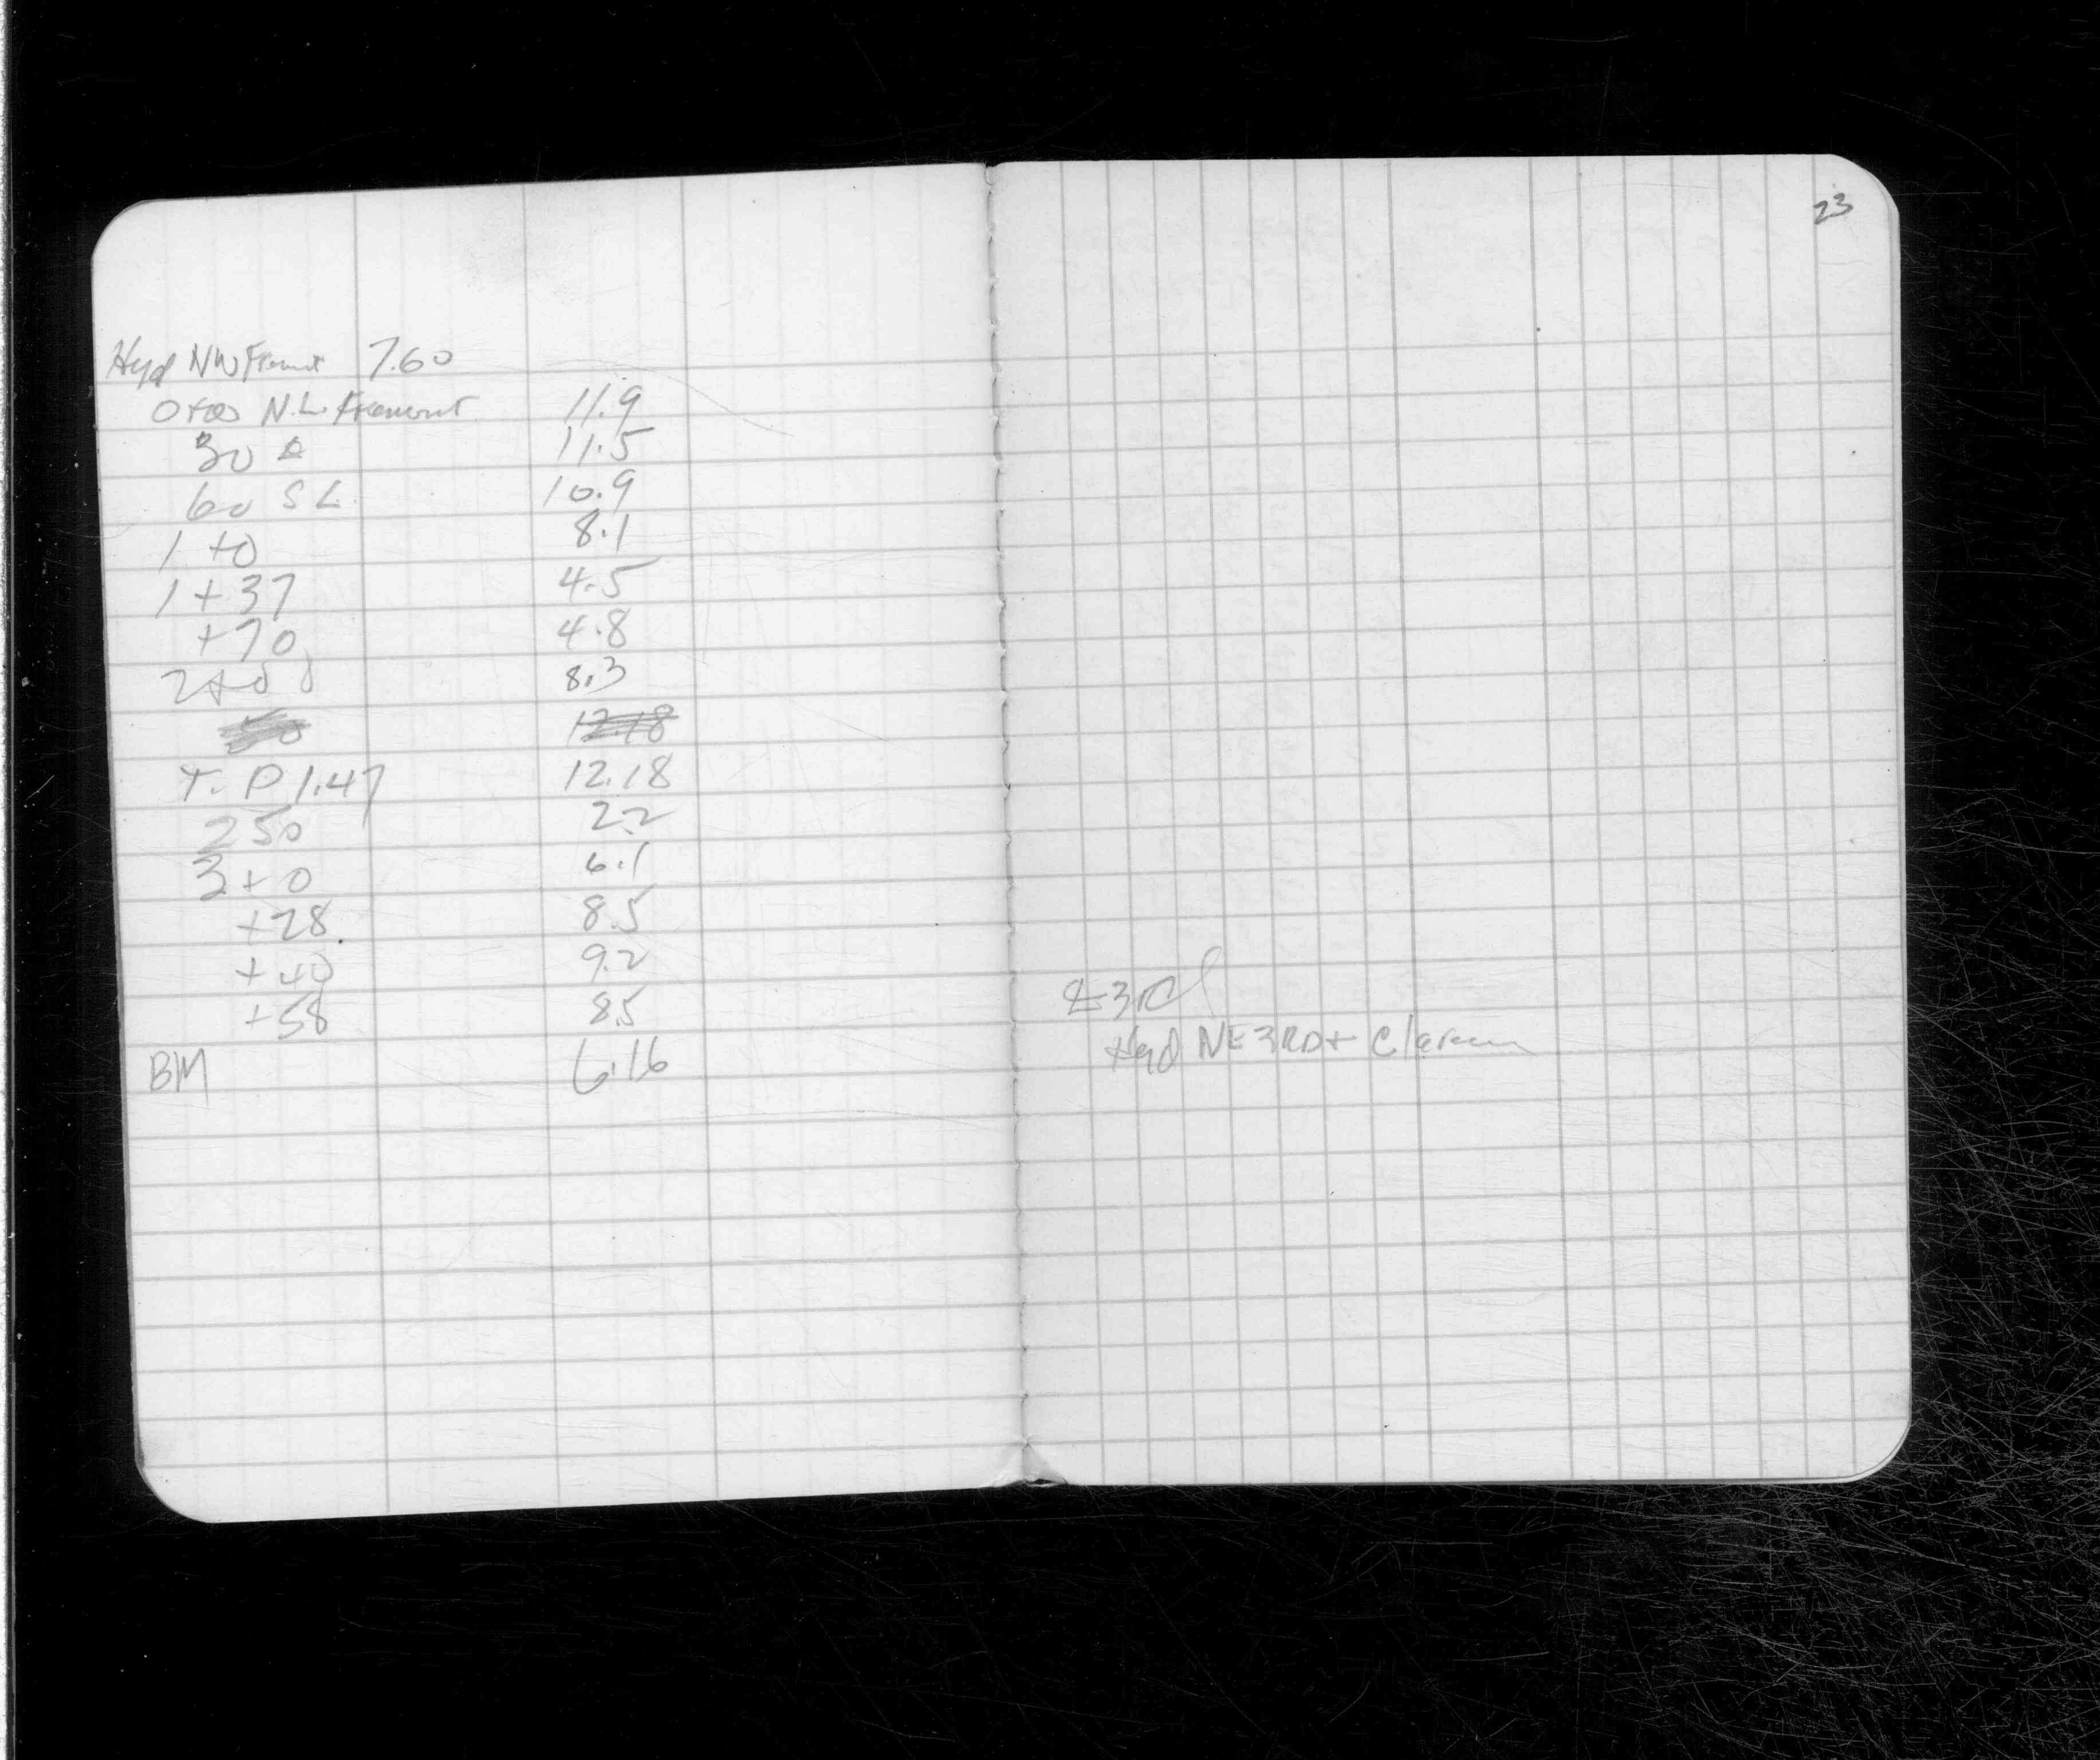 23
Hyd NW Fremt 7.60
0+00 N.L. Fremont 11.9
30 11.5
60 S L. 10.9
1+0 8.1
1+37 4.5
+70 4.8
2+00 8.3
50 12.18
T.P 1.47 12.18
250 2.2
3+0 6.1
+28 8.5
+40 9.2
+58 8.5
BM 6.16
℄ 3rd
Hyd NE 3RD+